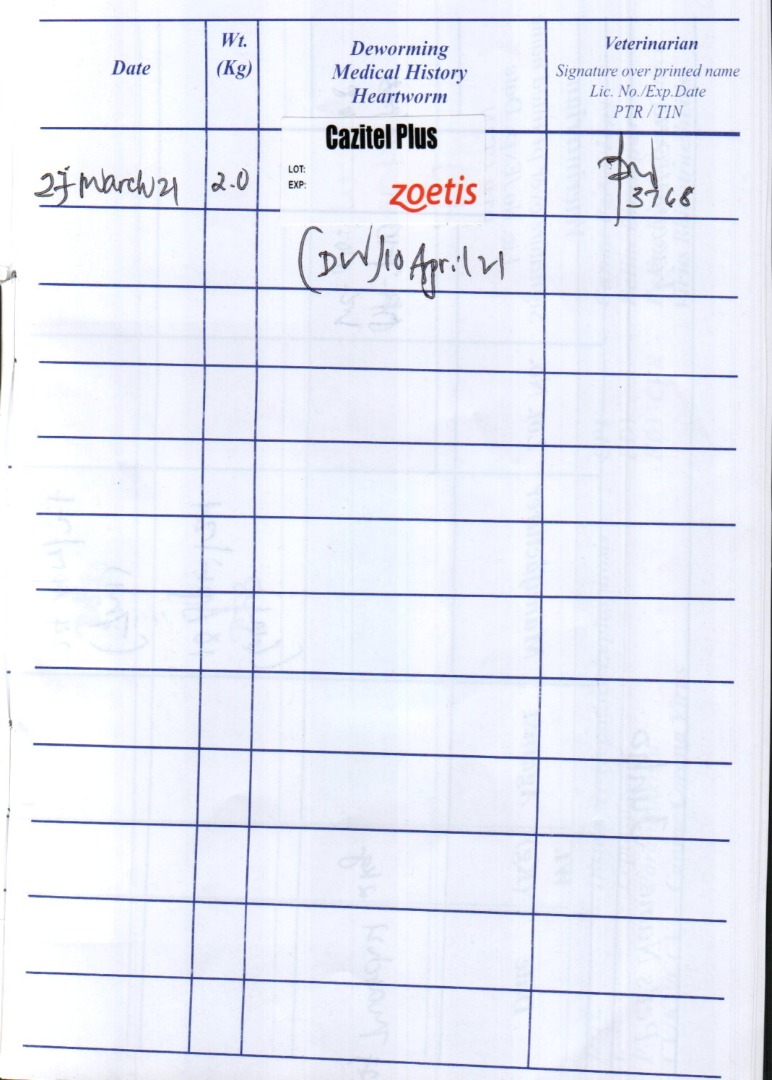 Date
Wt.
(Kg)
Deworming
Medical History
Heartworm
Veterinarian
Signature over printed name
Lic. No./Exp.Date
PTR / TIN
March 21
2.0
Cazitel Plus
LOT:
EXP:
zoetis
3768
(DW) 10 April 21